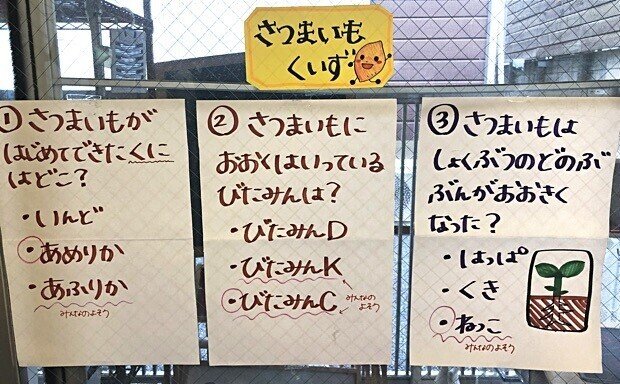 さつまいも
くいず
① さつまいもが
はじめてできたくに
はどこ？
・いんど
・あめりか
・あふりか
みんなのよそう
② さつまいもに
おおくはいっている
びたみんは？
・びたみんD
・びたみんK
・びたみんC
みんなの
よそう
③ さつまいもは
しょくぶつのどのぶ
ぶんがおおきく
なった？
・はっぱ
・くき
・ねっこ
みんなのよそう